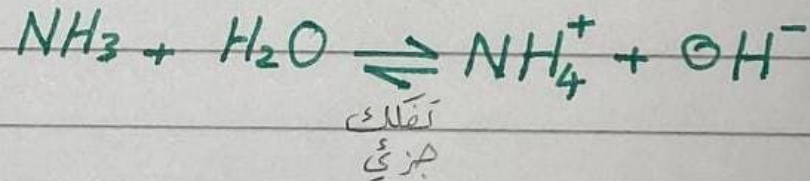 NH₃ + H₂O ⇌ NH₄⁺ + OH⁻
تفكك
جزئي